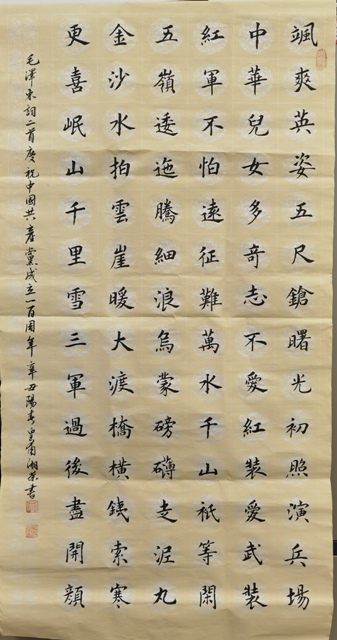 颯爽英姿五尺鎗曙光初照演兵場
中華兒女多奇志不愛紅裝愛武裝
紅軍不怕遠征難萬水千山祇等閑
五嶺逶迤騰細浪烏蒙磅礴走泥丸
金沙水拍雲崖暖大渡橋橫鐵索寒
更喜岷山千里雪三軍過後盡開顏
毛澤東詞二首慶祝中國共產黨成立一百周年辛丑陽春湘書